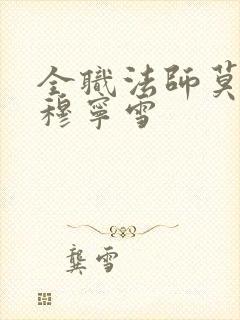 全職法師莫
穆寧雪
龔雪